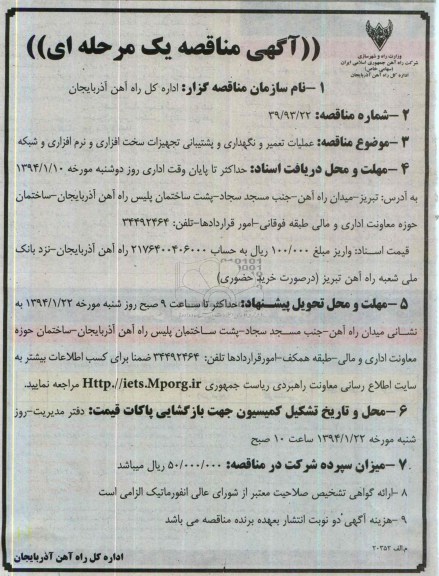 وزارت راه و شهرسازی
شرکت راه آهن جمهوری اسلامی ایران
(سهامی خاص)
اداره کل راه آهن آذربایجان
((آگهی مناقصه یک مرحله ای))
۱ –نام سازمان مناقصه گزار: اداره کل راه آهن آذربایجان
۲ –شماره مناقصه: ۳۹/۹۳/۲۲
۳ –موضوع مناقصه: عملیات تعمیر و نگهداری و پشتیبانی تجهیزات سخت افزاری و نرم افزاری و شبکه
۴ –مهلت و محل دریافت اسناد: حداکثر تا پایان وقت اداری روز دوشنبه مورخه ۱۳۹۴/۱/۱۰
به آدرس: تبریز–میدان راه آهن–جنب مسجد سجاد–پشت ساختمان پلیس راه آهن آذربایجان–ساختمان
حوزه معاونت اداری و مالی طبقه فوقانی–امور قراردادها–تلفن: ۳۴۴۹۲۴۶۴
قیمت اسناد: واریز مبلغ ۱۰۰/۰۰۰ ریال به حساب ۲۱۷۶۴۰۰۴۰۶۰۰۰ راه آهن آذربایجان–نزد بانک
ملی شعبه راه آهن تبریز (درصورت خرید حضوری)
۵ –مهلت و محل تحویل پیشنهاد: حداکثر تا ساعت ۹ صبح روز شنبه مورخه ۱۳۹۴/۱/۲۲ به
نشانی میدان راه آهن–جنب مسجد سجاد–پشت ساختمان پلیس راه آهن آذربایجان–ساختمان حوزه
معاونت اداری و مالی–طبقه همکف–امورقراردادها تلفن: ۳۴۴۹۲۴۶۴ ضمنا برای کسب اطلاعات بیشتر به
سایت اطلاع رسانی معاونت راهبردی ریاست جمهوری Http.//iets.Mporg.ir مراجعه نمایید.
۶ –محل و تاریخ تشکیل کمیسیون جهت بازگشایی پاکات قیمت: دفتر مدیریت–روز
شنبه مورخه ۱۳۹۴/۱/۲۲ ساعت ۱۰ صبح
۷ –میزان سپرده شرکت در مناقصه: ۵۰/۰۰۰/۰۰۰ ریال میباشد
۸ –ارائه گواهی تشخیص صلاحیت معتبر از شورای عالی انفورماتیک الزامی است
۹ –هزینه آگهی دو نوبت انتشار بعهده برنده مناقصه می باشد
م.الف ۲۰۳۵۳
اداره کل راه آهن آذربایجان